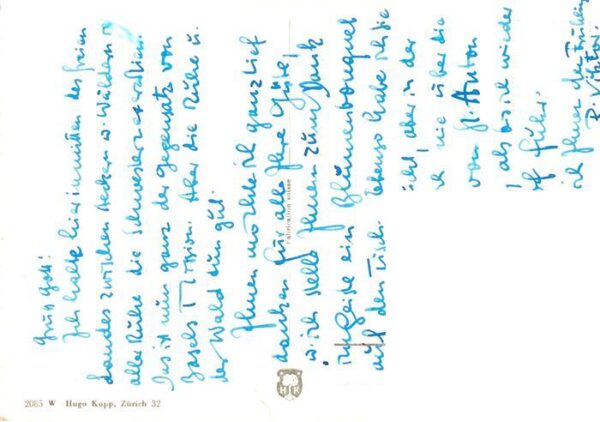 Grüss Gott!
Ich halte hier inmitten des freien
Landes zwischen Aeckern u. Wäldern in
aller Ruhe die Schwesternexerzitien.
Das ist nun ganz der Gegensatz von
Basels Mission. Aber die Ruhe u.
der Wald tun gut.
Ihnen möchte ich ganz lieb
danken für alle Ihre Güte,
u. ich stelle Ihnen zum Dank
im Geiste ein Blumenbouquet
auf den Tisch. Ebenso habe ich die
icht, aber in der
ch nie über die
von St. Anton
als bis ich wieder
führ.
ich Ihnen den Frühling
P. Viktor.
Fabrication suisse
HK
2085 W Hugo Kopp, Zürich 32